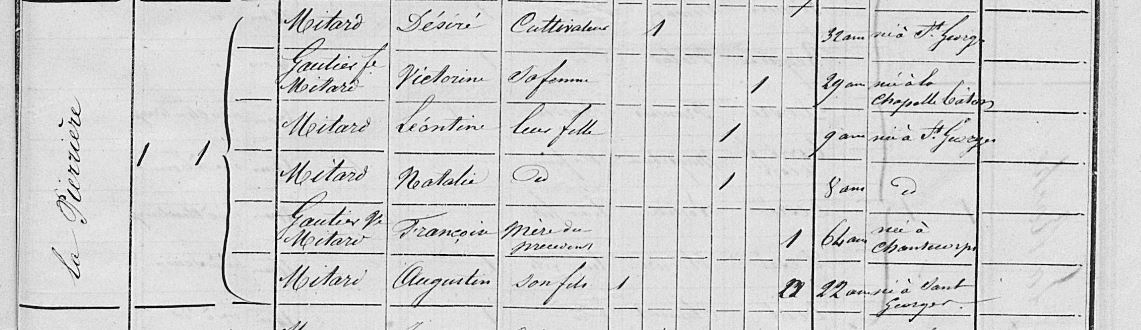 la Pierrière
1 1
Mitard Désiré Cultivateur 1 32 ans né à St Georges
Gautier fe
Mitard Victorine Sa femme 1 29 ans née à la
Chapelle Bâton
Mitard Léontine leur fille 1 9 ans née à St Georges
Mitard Natalie do 1 8 ans do
Gautier Ve
Mitard Françoise Mère du
précédent 1 64 ans née à
Chantecorps
Mitard Augustin Son fils 1 22 ans né à Saint
Georges